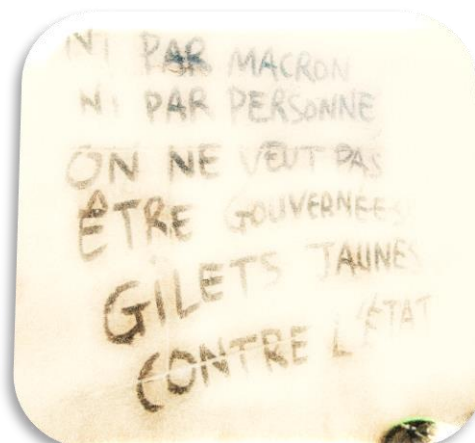 NI PAR MACRON
NI PAR PERSONNE
ON NE VEUT PAS
ÊTRE GOUVERNEES
GILETS JAUNES
CONTRE L'ÉTAT